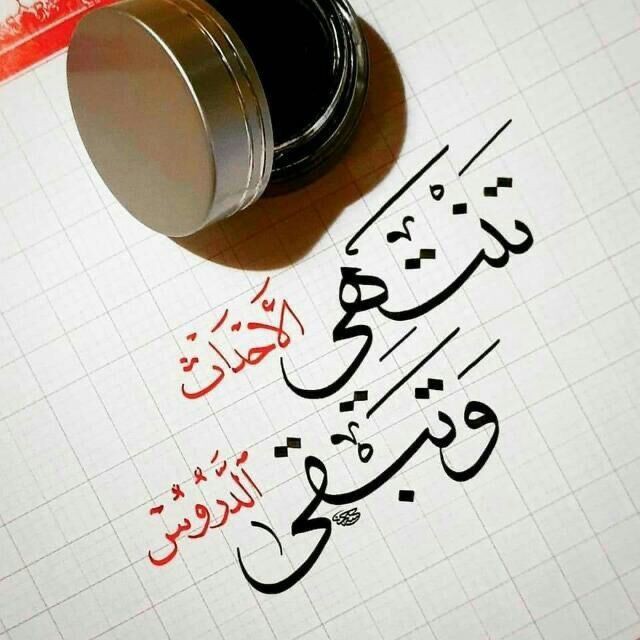 تَنْتَهِي الأَحْدَاثْ
وَتَبْقَى الدُّرُوُسْ